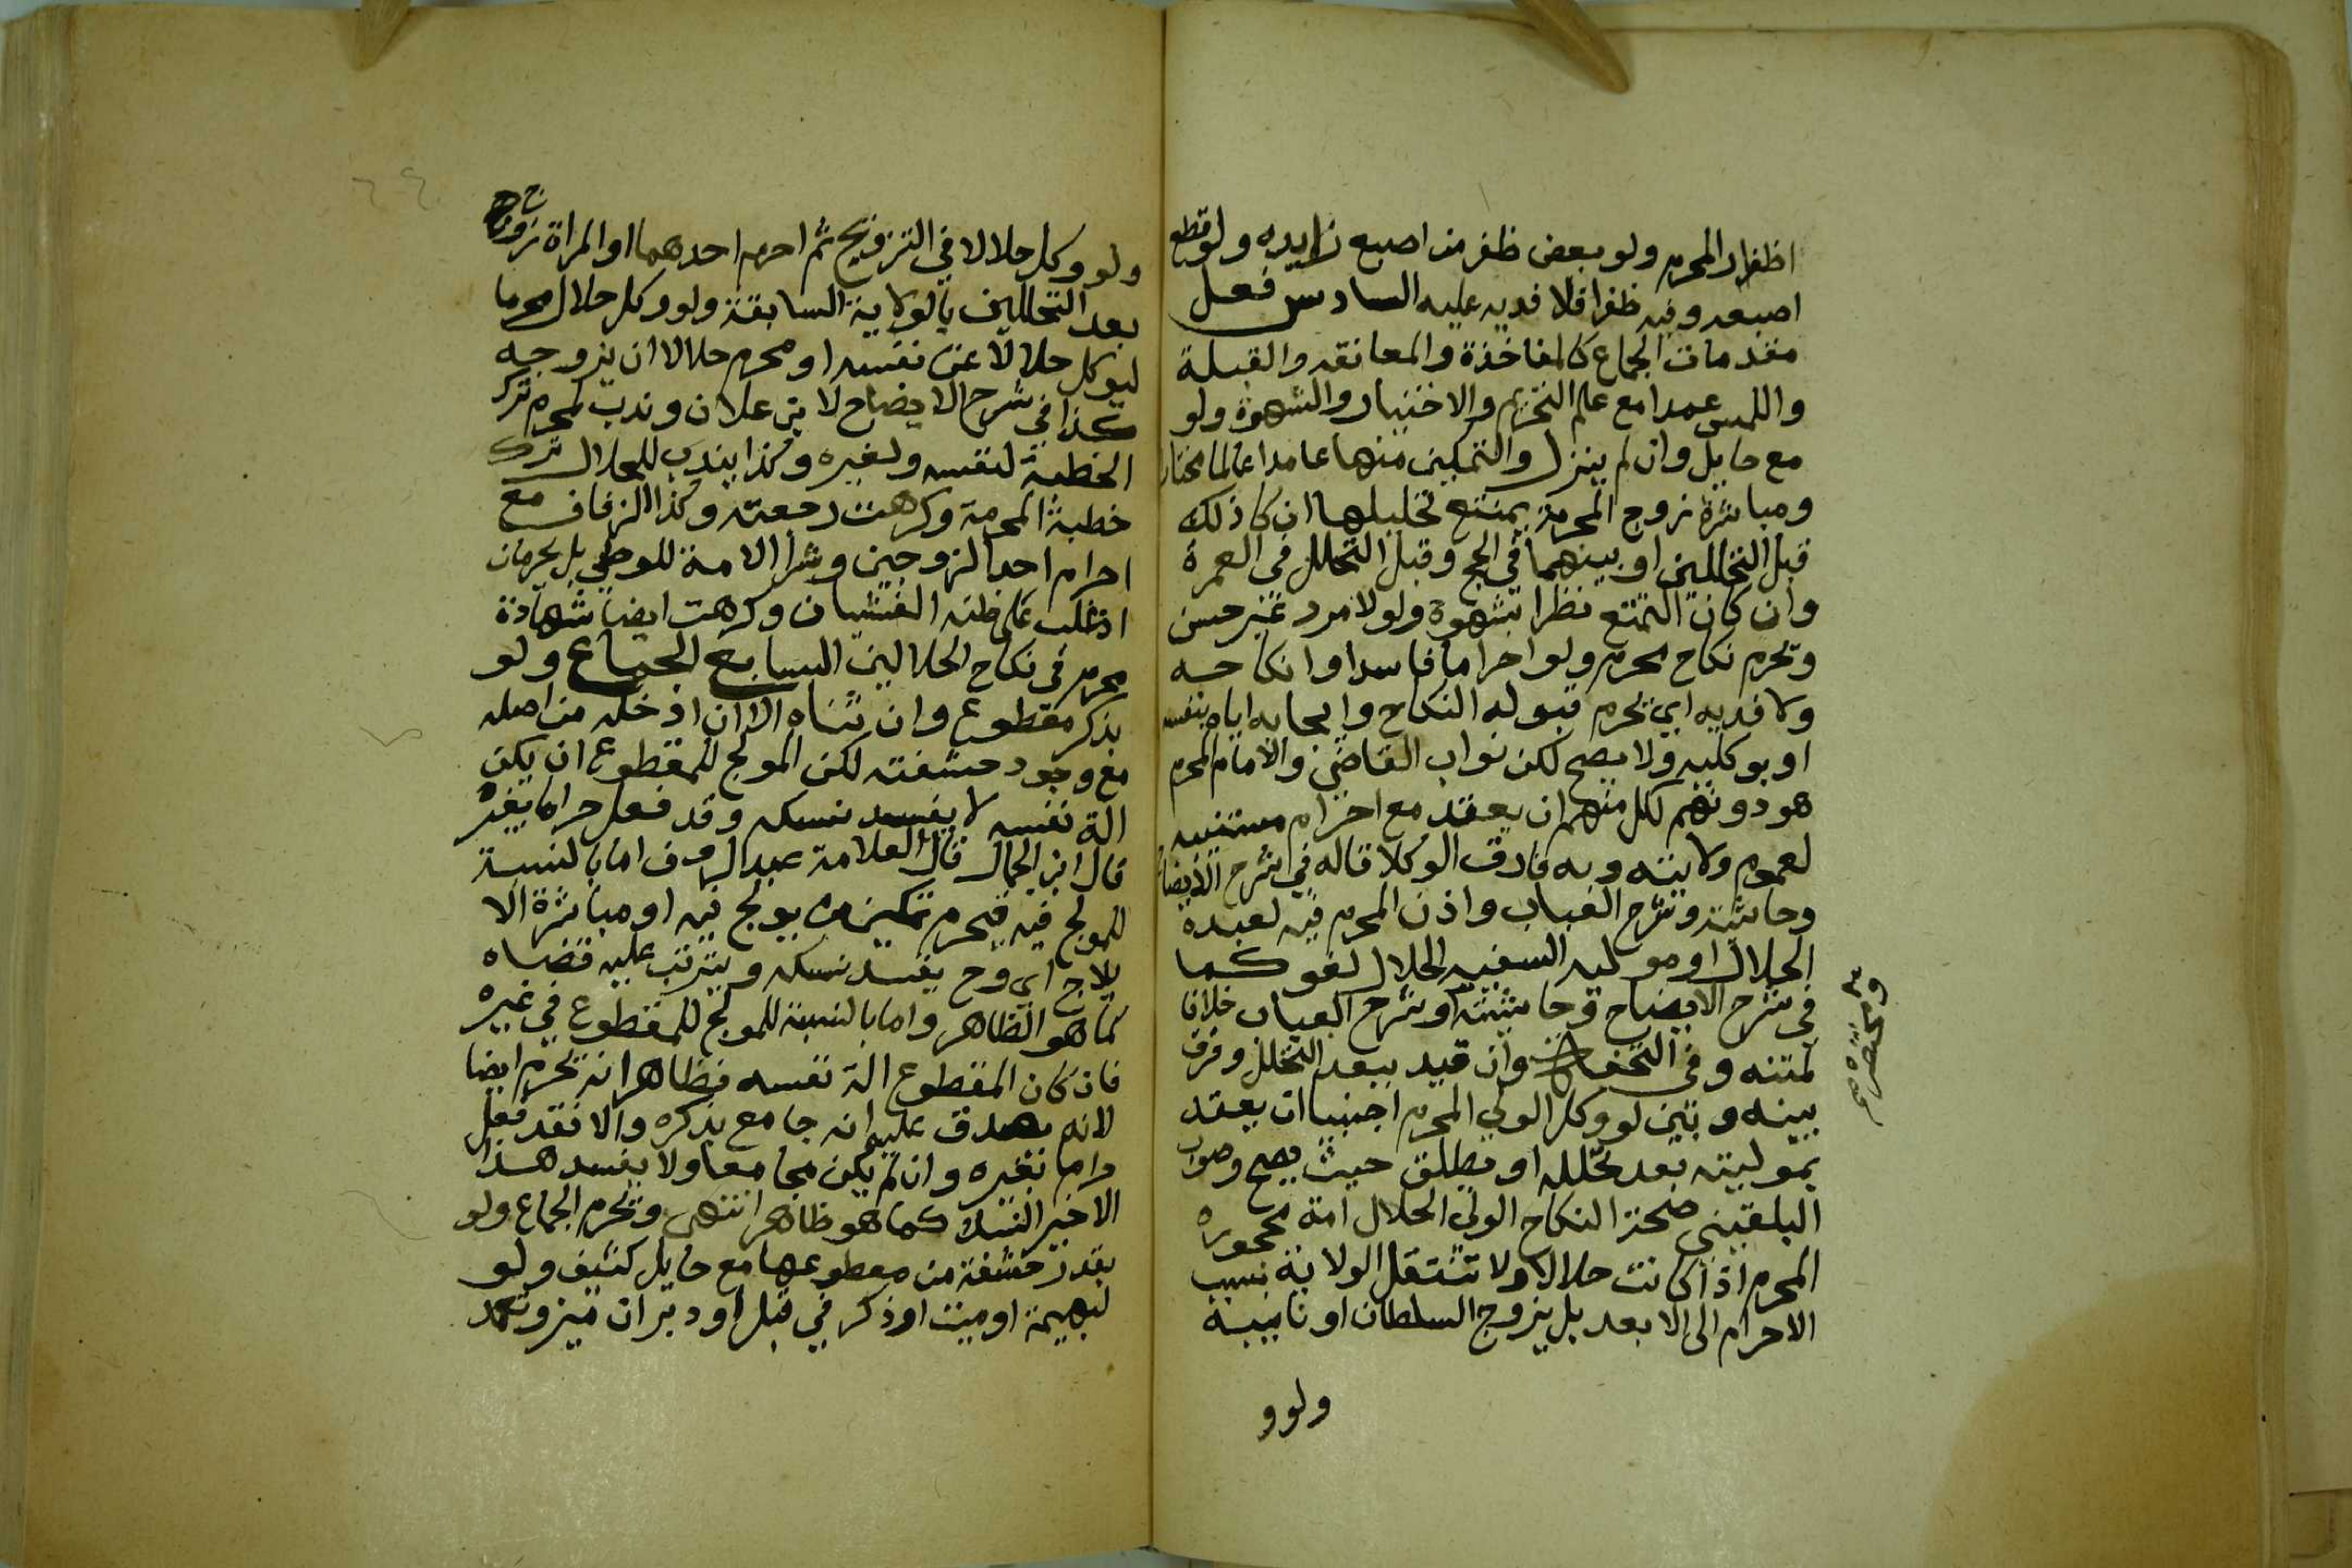 اظفار المحرم ولو بعض ظفر من اصبع زايده ولو قطع
اصبعه وفيه ظفرا فلا فديه عليه السادس فعل
مقدمات الجماع كالمفاخذة والمعانقه والقبلة
واللمس عمدا مع علم التحريم والاختيار والشهوة ولو
مع حايل وان لم ينزل والتمكين منها عامدا عالما مختارا
ومباشرة زوج المحرمة يمتنع تحليلها ان كا ذلك
قبل التحللين او بينهما في الحج وقبل التحلل في العمرة
وان كان التمتع نظرا بشهوة ولو لامرد غير حسن
وتحرم نكاح محرم ولو احراما فاسدا وانكاحه
ولا فديه اي يحرم قبوله النكاح وايجابه اياه بنفسه
او بوكليه ولا يصح لكن نواب القاضي والامام المحرم
هو دونهم لكل منهم ان يعقد مع احرام مستنيبه
لعموم ولايته وبه فارق الوكلا قاله في شرح الايضاح
وحاشيته وشرح العباب واذن المحرم فيه لعبده
الحلال او موليه السفيه الحلال لغو كما
في شرح الايضاح وحاشيته وشرح العباب خلافا
لمتنه وفي التحفة وان قيد ببعد التحلل وفرق
بينه وبين لو وكل الولي المحرم اجنبيا ان يعقد
بموليته بعد تحلله او يطلق حيث يصح وصوب
البلقيني صحة النكاح الولي الحلال امة محجوره
المحرم اذا كانت حلالا ولا تنتقل الولاية بسبب
الاحرام الى الابعد بل يزوج السلطان او نايبه
ومختصره
ولوو
ولو وكل حلالا في التزويج ثم احرم احدهما او المراة زوج
بعد التحللين بالولاية السابقة ولو وكل حلال محرما
ليوكل حلالا عن نفسه او محرم حلالا ان يزوجه
كذا في شرح الايضاح لابن علان وندب لمحرم ترك
الخطبة لنفسه ولغيره وكذا يندب للحلال ترك
خطبة المحرمة وكرهت رجعته وكذا الزفاف مع
احرام احد الزوجين وشرا الامة للوطي بل يحرمان
ان غلب على ظنه الغشيان وكرهت ايضا شهادة
محرم في نكاح الحلالين السابع الجماع ولو
بذكر مقطوع وان ثناه الا ان ادخله من اصله
مع وجود حشفته لكن المولج للمقطوع ان يكن
الة نفسه لا يفسد نسكه وقد فعل حراما بغيره
قال ابن الجمال قال العلامة عبد الروف اما بالنسبة
للمولج فيه فيحرم تمكين من يولج فيه او مباشرة الا
يلاج اي وح يفسد نسكه ويترتب عليه قضاه
كما هو الظاهر واما بالنسبة للمولج للمقطوع في غيره
فان كان المقطوع الة نفسه فظاهر انه تحرم ايضا
لانه يصدق عليه انه جامع بذكره والا فقد فعل
حراما بغيره وان لم يكن مجامعا ولا يفسد هذا
الاخير النسك كما هو ظاهر انتهى وتحرم الجماع ولو
بقدر حشفة من مقطوعها مع حايل كثيف ولو
لبهيمة او ميت او ذكر في قبل او دبر ان ميز وتعمد